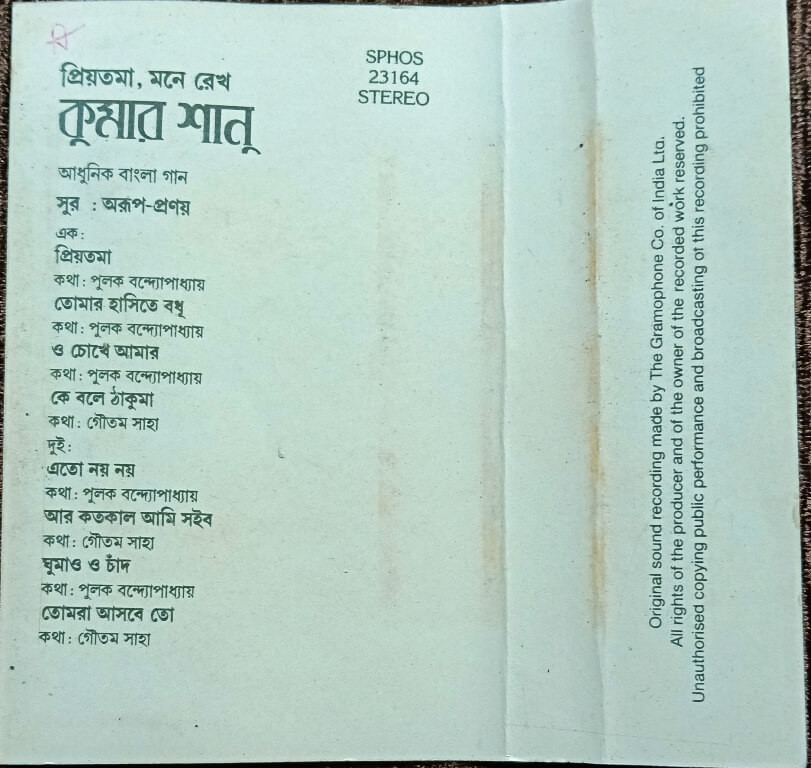 প্রিয়তমা, মনে রেখ
কুমার শানু
আধুনিক বাংলা গান
সুর : অরূপ-প্রণয়
এক:
প্রিয়তমা
কথা : পুলক বন্দ্যোপাধ্যায়
তোমার হাসিতে বধূ
কথা : পুলক বন্দ্যোপাধ্যায়
ও চোখে আমার
কথা : পুলক বন্দ্যোপাধ্যায়
কে বলে ঠাকুমা
কথা : গৌতম সাহা
দুই:
এতো নয় নয়
কথা : পুলক বন্দ্যোপাধ্যায়
আর কতকাল আমি সইব
কথা : গৌতম সাহা
ঘুমাও ও চাঁদ
কথা : পুলক বন্দ্যোপাধ্যায়
তোমরা আসবে তো
কথা : গৌতম সাহা
SPHOS
23164
STEREO
Original sound recording made by The Gramophone Co. of India Ltd.
All rights of the producer and of the owner of the recorded work reserved.
Unauthorised copying public performance and broadcasting of this recording prohibited